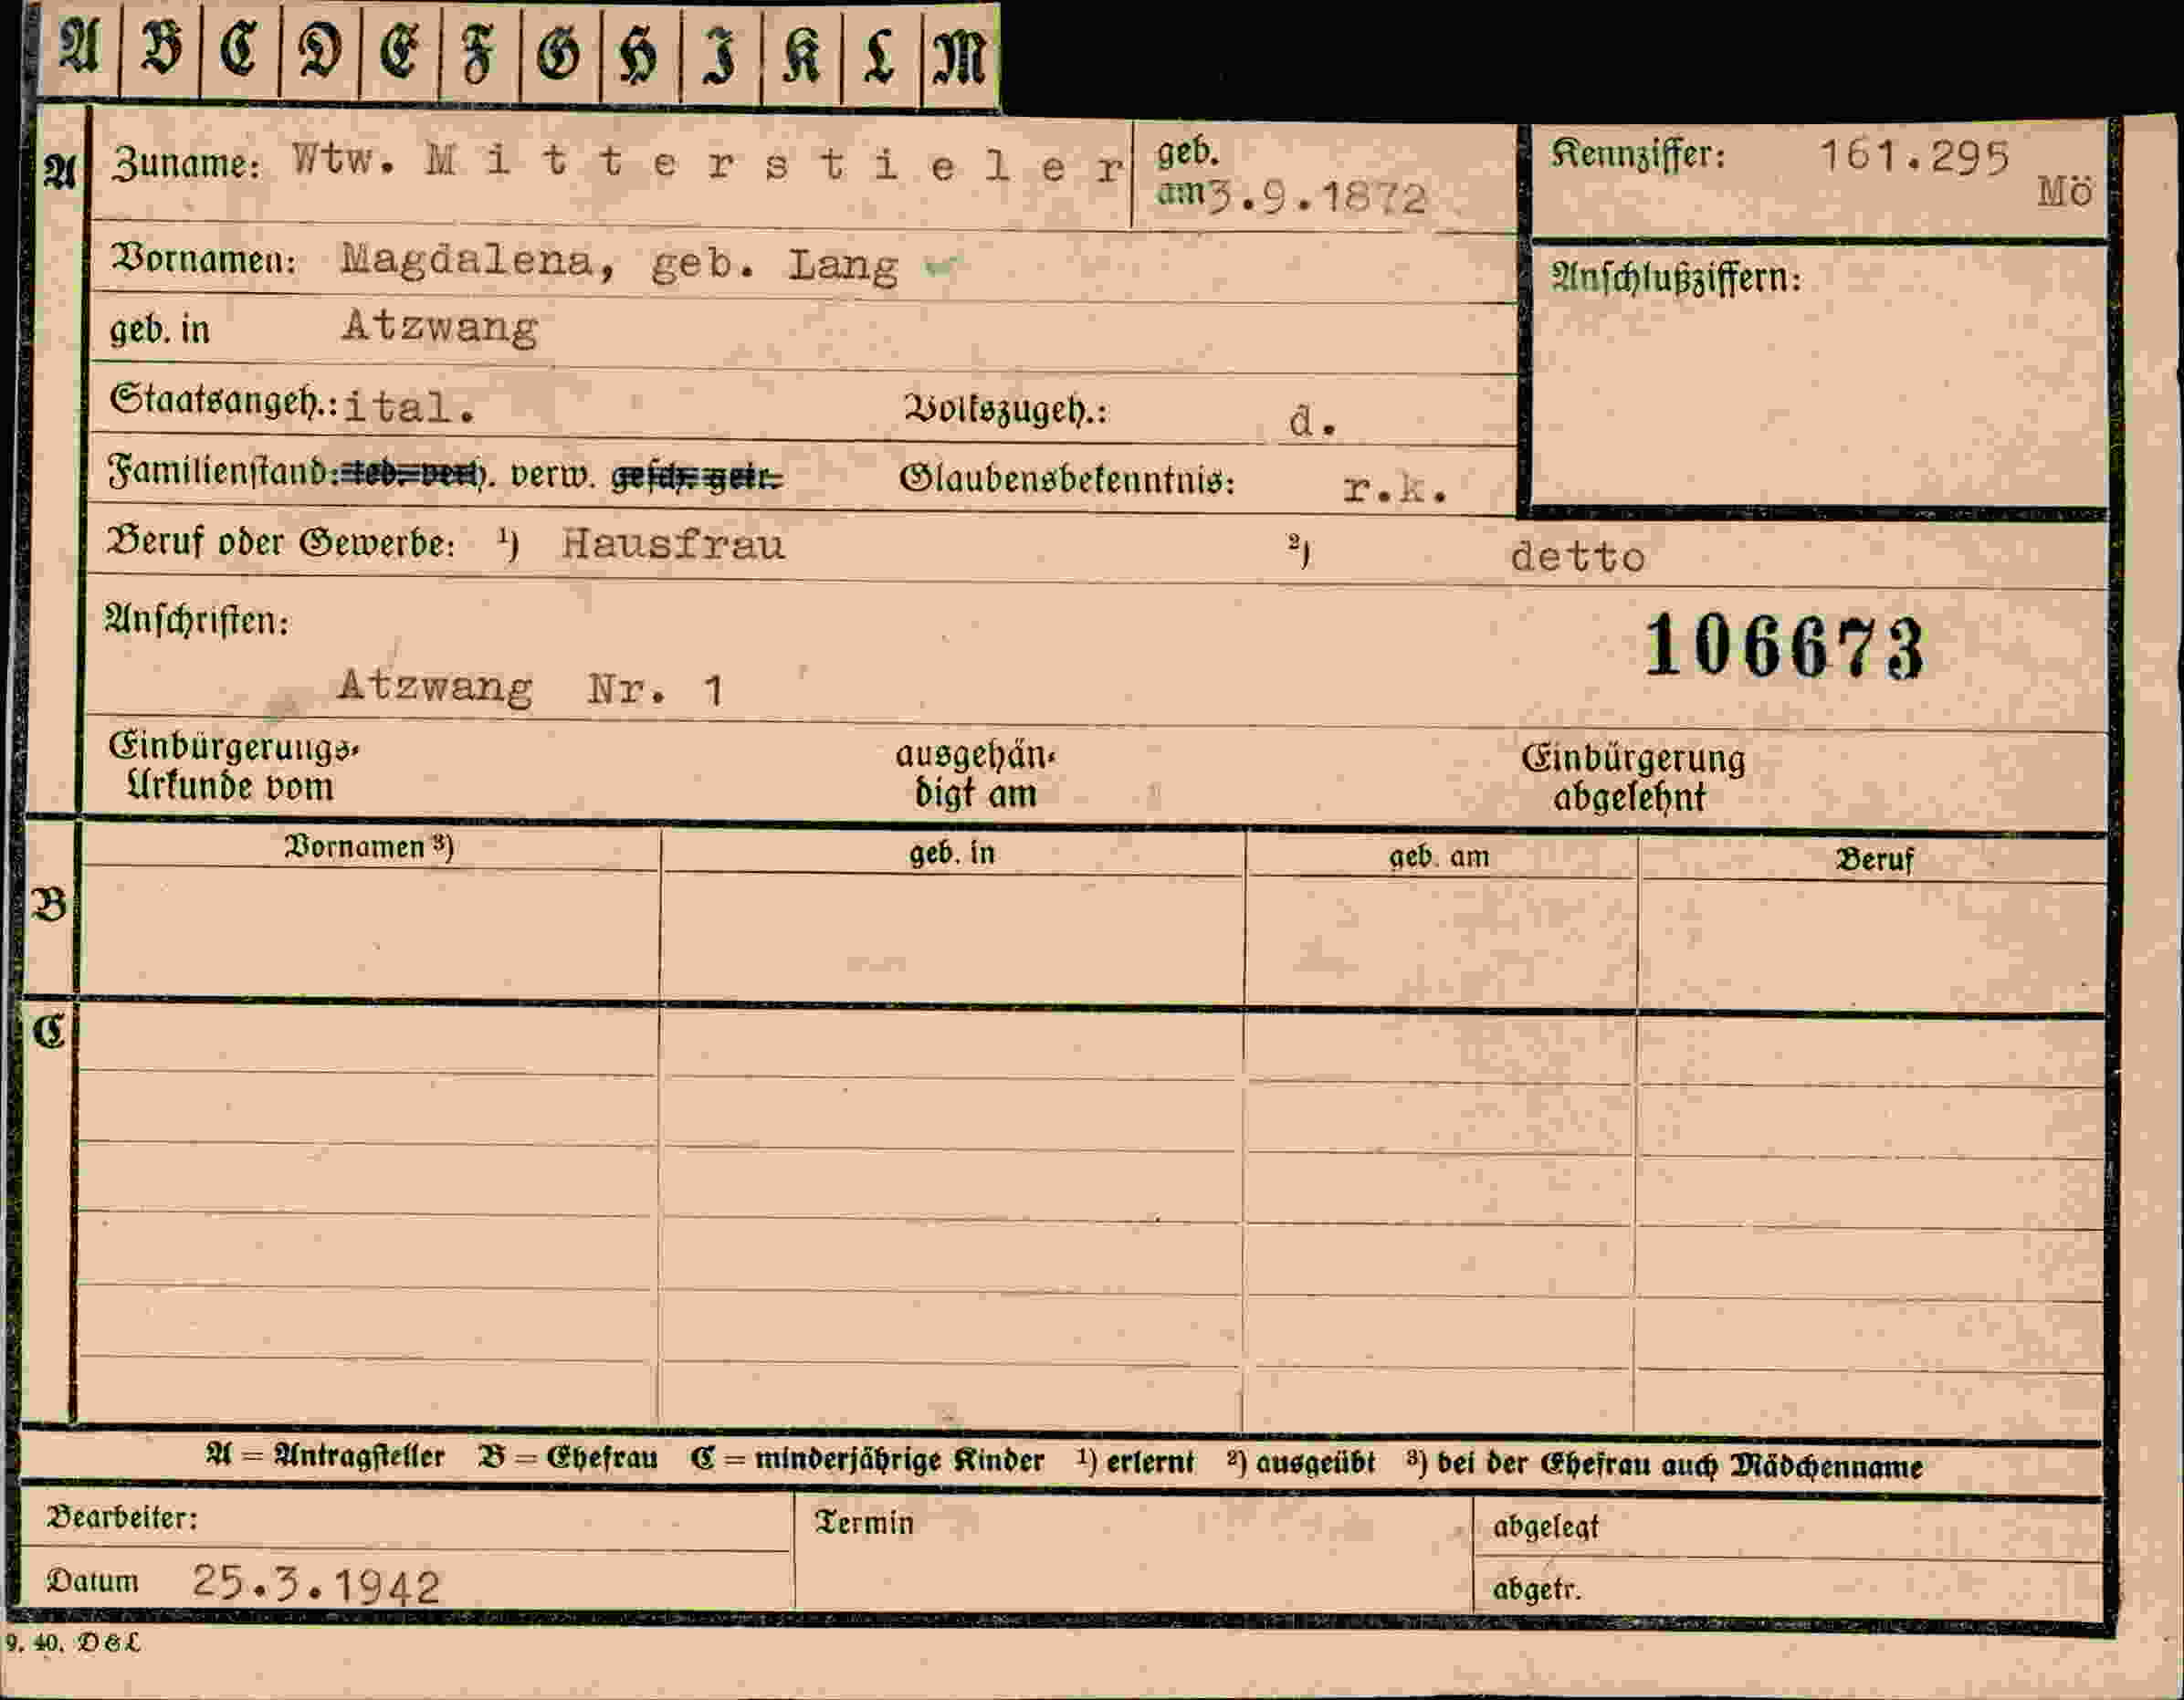 A B C D E F G H I K L M
A Zuname: Wtw. M i t t e r s t i e l e r geb. am 3.9.1872 Kennziffer: 161.295 Mö
Vornamen: Magdalena, geb. Lang Anschlußziffern:
geb. in Atzwang
Staatsangeh.: ital. Volkszugeh.: d.
Familienstand: led. verh. verw. gesch. getr. Glaubensbekenntnis: r.k.
Beruf oder Gewerbe: ¹) Hausfrau ²) detto
Anschriften: 106673
Atzwang Nr. 1
Einbürgerungs- ausgehän- Einbürgerung
Urkunde vom digt am abgelehnt
Vornamen ³) geb. in geb. am Beruf
B
C
A = Antragsteller B = Ehefrau C = minderjährige Kinder ¹) erlernt ²) ausgeübt ³) bei der Ehefrau auch Mädchenname
Bearbeiter: Termin abgelegt
Datum 25.3.1942 abgetr.
9. 40. D&L